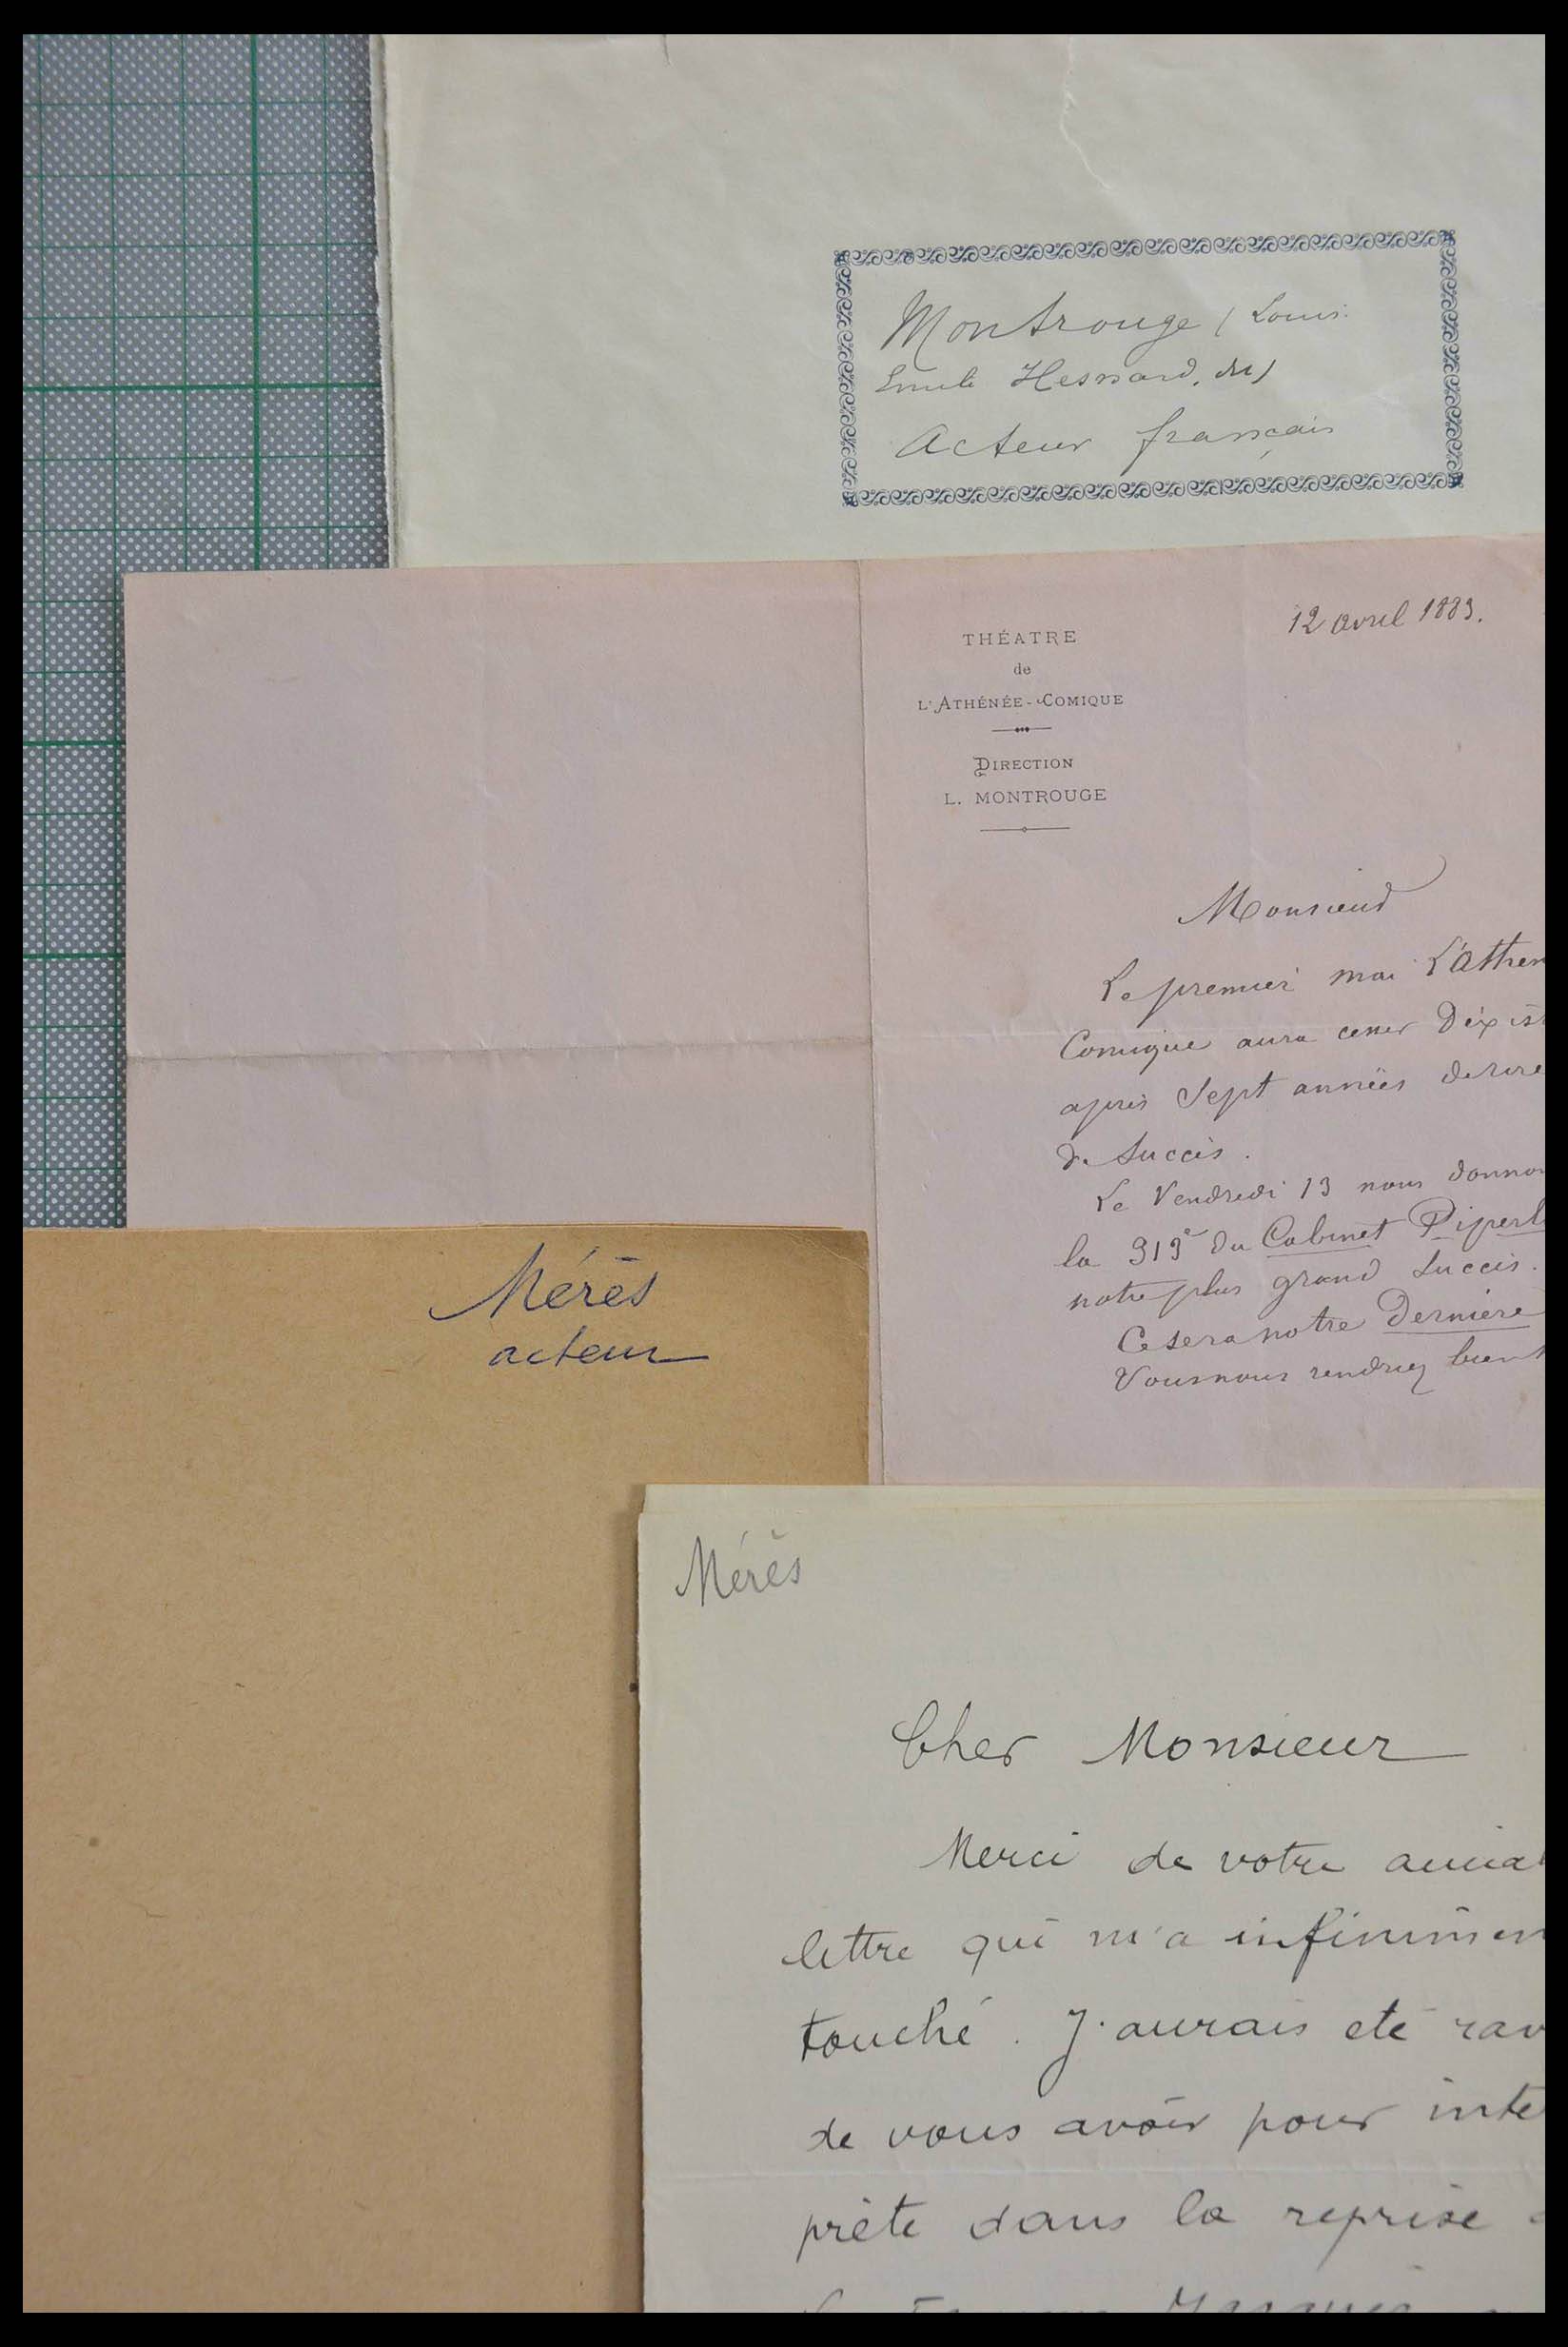 Montrouge (Louis
Emile Hesnard, dit)
Acteur français
12 avril 1883.
THÉATRE
de
L'ATHÉNÉE-COMIQUE
DIRECTION
L. MONTROUGE
Monsieur
Le premier mai L'Athen
Comique aura cesser d'exis
après Sept années de rire
de Succès.
Le Vendredi 13 nous donnon
la 313e du Cabinet Piperl
notre plus grand Succès.
Ce sera notre Dernière
Vous nous rendriez bien
Mérès
acteur
Mérès
Cher Monsieur
Merci de votre aima
lettre qui m'a infinimen
touché. J'aurais eté rav
de vous avoir pour inte
prète dans la reprise